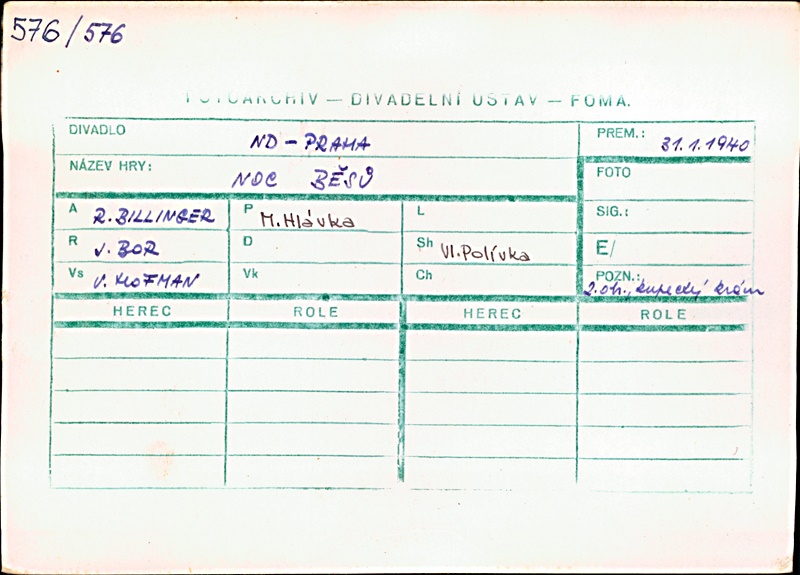 576/576
FOTOARCHIV — DIVADELNÍ ÚSTAV — FOMA.
DIVADLO ND - PRAHA PREM.: 31.1.1940
NÁZEV HRY: NOC BĚSŮ FOTO
A R. BILLINGER P M. Hlávka L SIG.:
R J. BOR D Sh Vl. Polívka E/
Vs V. HOFMAN Vk Ch POZN.: 2. obr., kupecký krám
HEREC ROLE HEREC ROLE